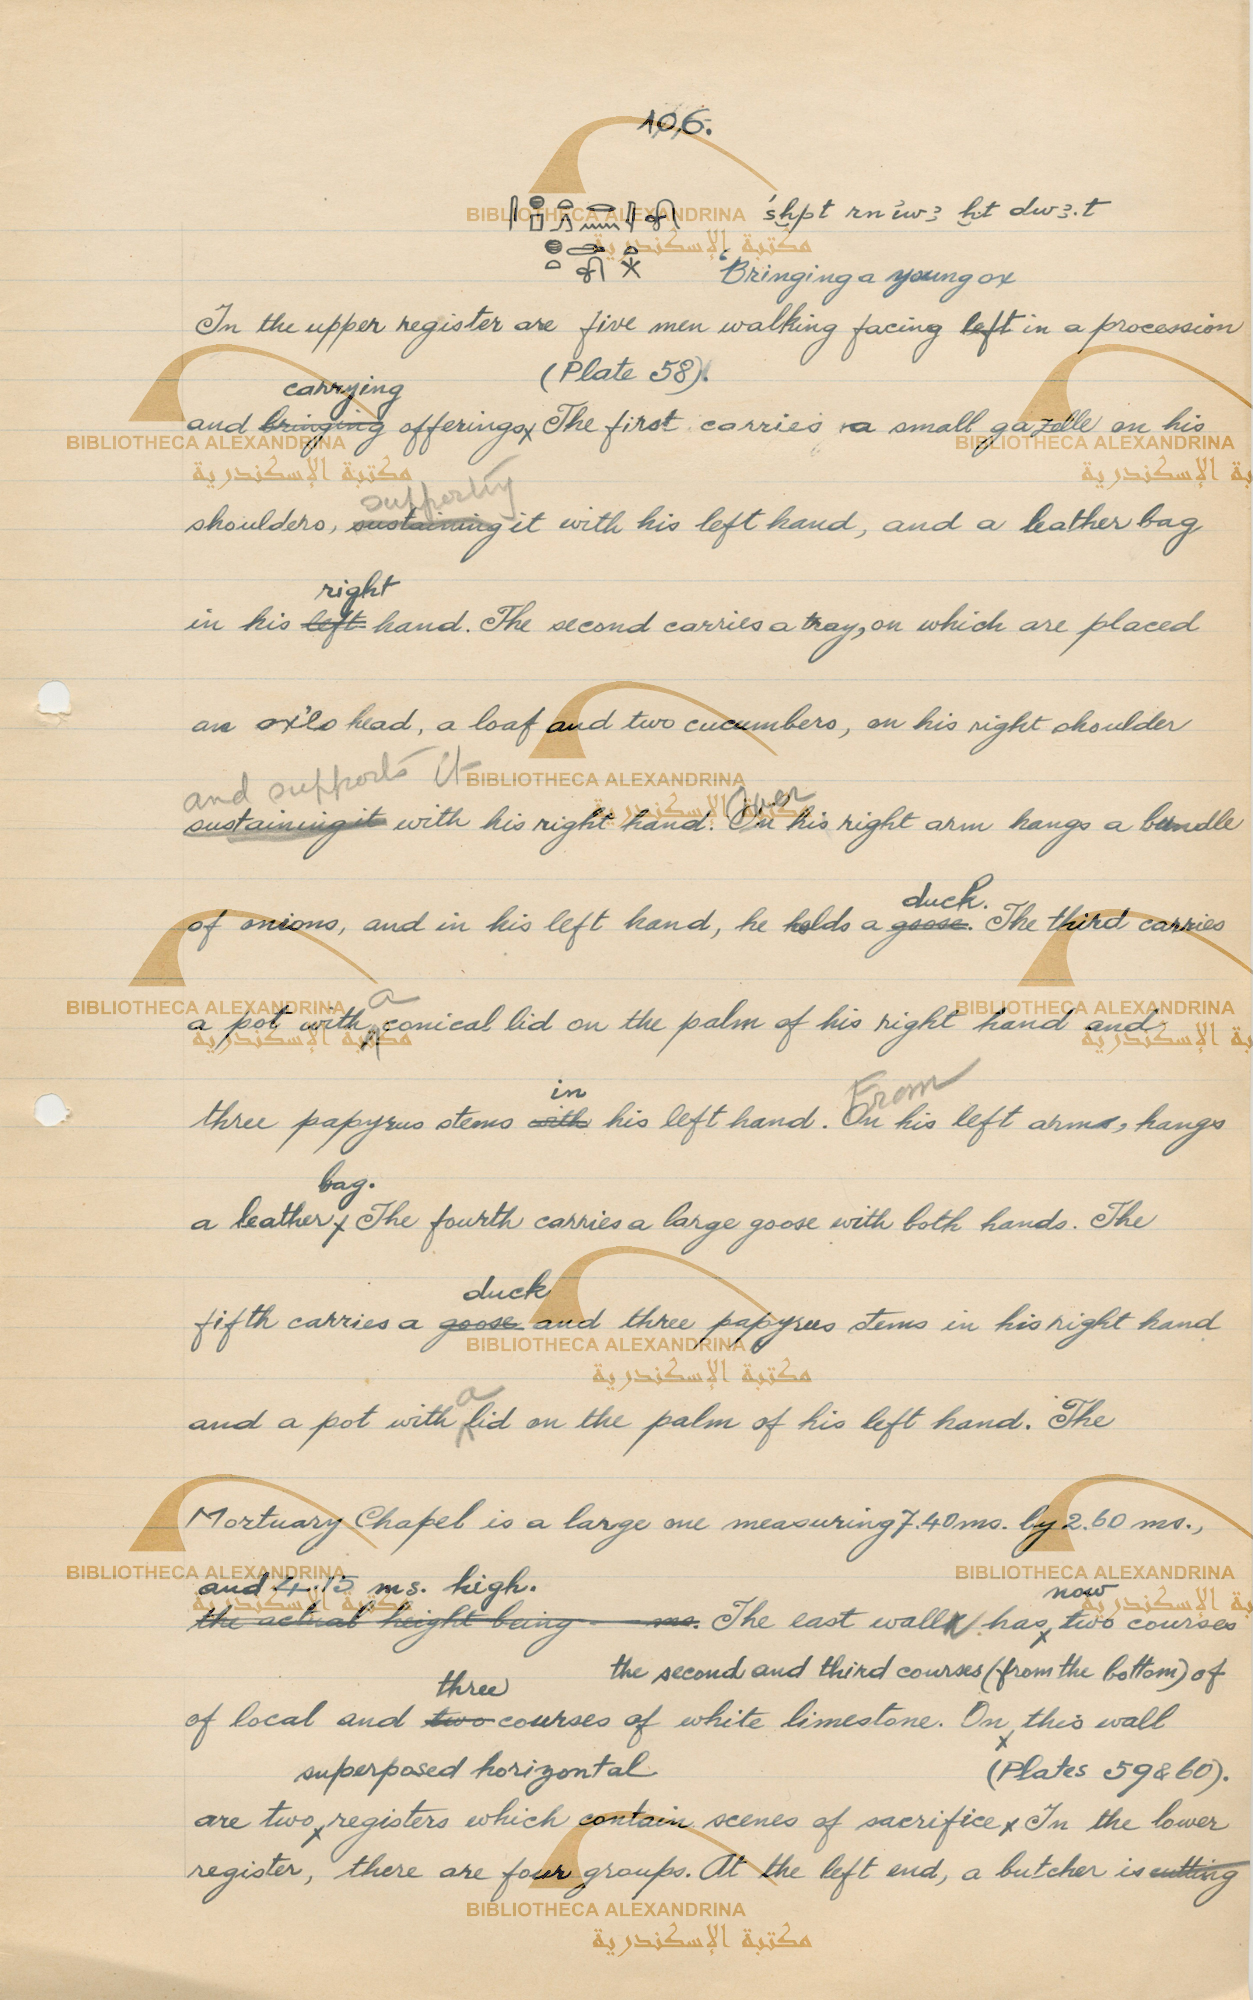 106.
śẖpt rn iwꜣ ẖt dwꜣ.t
Bringing a young ox
In the upper register are five men walking facing left in a procession
(Plate 58).
carrying
and bringing offerings x The first carries a small gazelle on his
supporting
shoulders, sustaining it with his left hand, and a leather bag
right
in his left hand. The second carries a tray, on which are placed
an ox's head, a loaf and two cucumbers, on his right shoulder
and supports it
sustaining it with his right hand. On his right arm hangs a bundle
Over
duck.
of onions, and in his left hand, he holds a goose. The third carries
a
a pot with conical lid on the palm of his right hand and
in From
three papyrus stems with his left hand. On his left arm, hangs
bag.
a leather x The fourth carries a large goose with both hands. The
duck
fifth carries a goose and three papyrus stems in his right hand
a
and a pot with lid on the palm of his left hand. The
Mortuary Chapel is a large one measuring 7.40 ms. by 2.60 ms.,
and 4.15 ms. high. now
the actual height being — ms. The east wall has x two courses
the second and third courses (from the bottom) of
three
of local and two courses of white limestone. On x this wall
superposed horizontal (Plates 59 & 60).
are two x registers which contain scenes of sacrifice x In the lower
register, there are four groups. At the left end, a butcher is cutting
BIBLIOTHECA ALEXANDRINA
مكتبة الإسكندرية